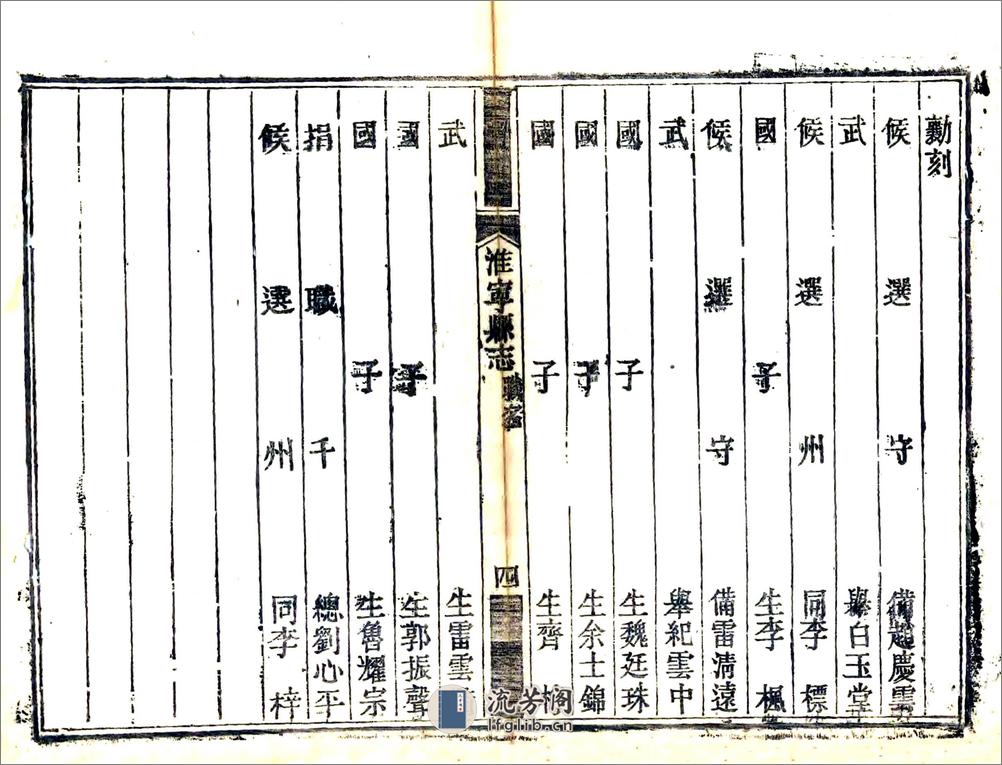 勷刻
候選守備趙慶雲
武舉白玉堂
候選州同李標
國子生李楓
候選守備雷清遠
武舉紀雲中
國子生魏廷珠
國子生余士錦
國子生齊
淮寧縣志
職名
四
武生雷雲
國子生郭振聲
國子生魯耀宗
捐職千總劉心平
候選州同李梓
流芳閣
lfglib.cn